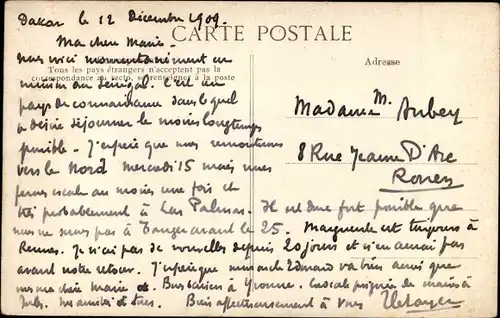 Dakar le 12 Décembre 1909.
Ma chère Marie
CARTE POSTALE
Tous les pays étrangers n'acceptent pas la
correspondance au recto, se renseigner à la poste
Adresse
nous voici momentanément en
du Sénégal. C'est un
pays de connaissance dans lequel
désire séjourner le moins longtemps
possible - J'espère que nous remontrons
vers le Nord mercredi 15 mais nous
ferons escale au moins une fois et
très probablement à Las Palmas. Il est donc fort possible que
nous ne soyons pas à Tanger avant le 25. Marguerite est toujours à
Rennes. Je n'ai pas de nouvelles depuis 20 jours et n'en aurai pas
avant notre retour. J'espère que mon oncle Edmond va bien ainsi que
ma chère Marie et. Bons baisers à Yvonne.
Bien affectueusement à vous
Madame M. Aubey
8 Rue Jeanne D'Arc
Rouen